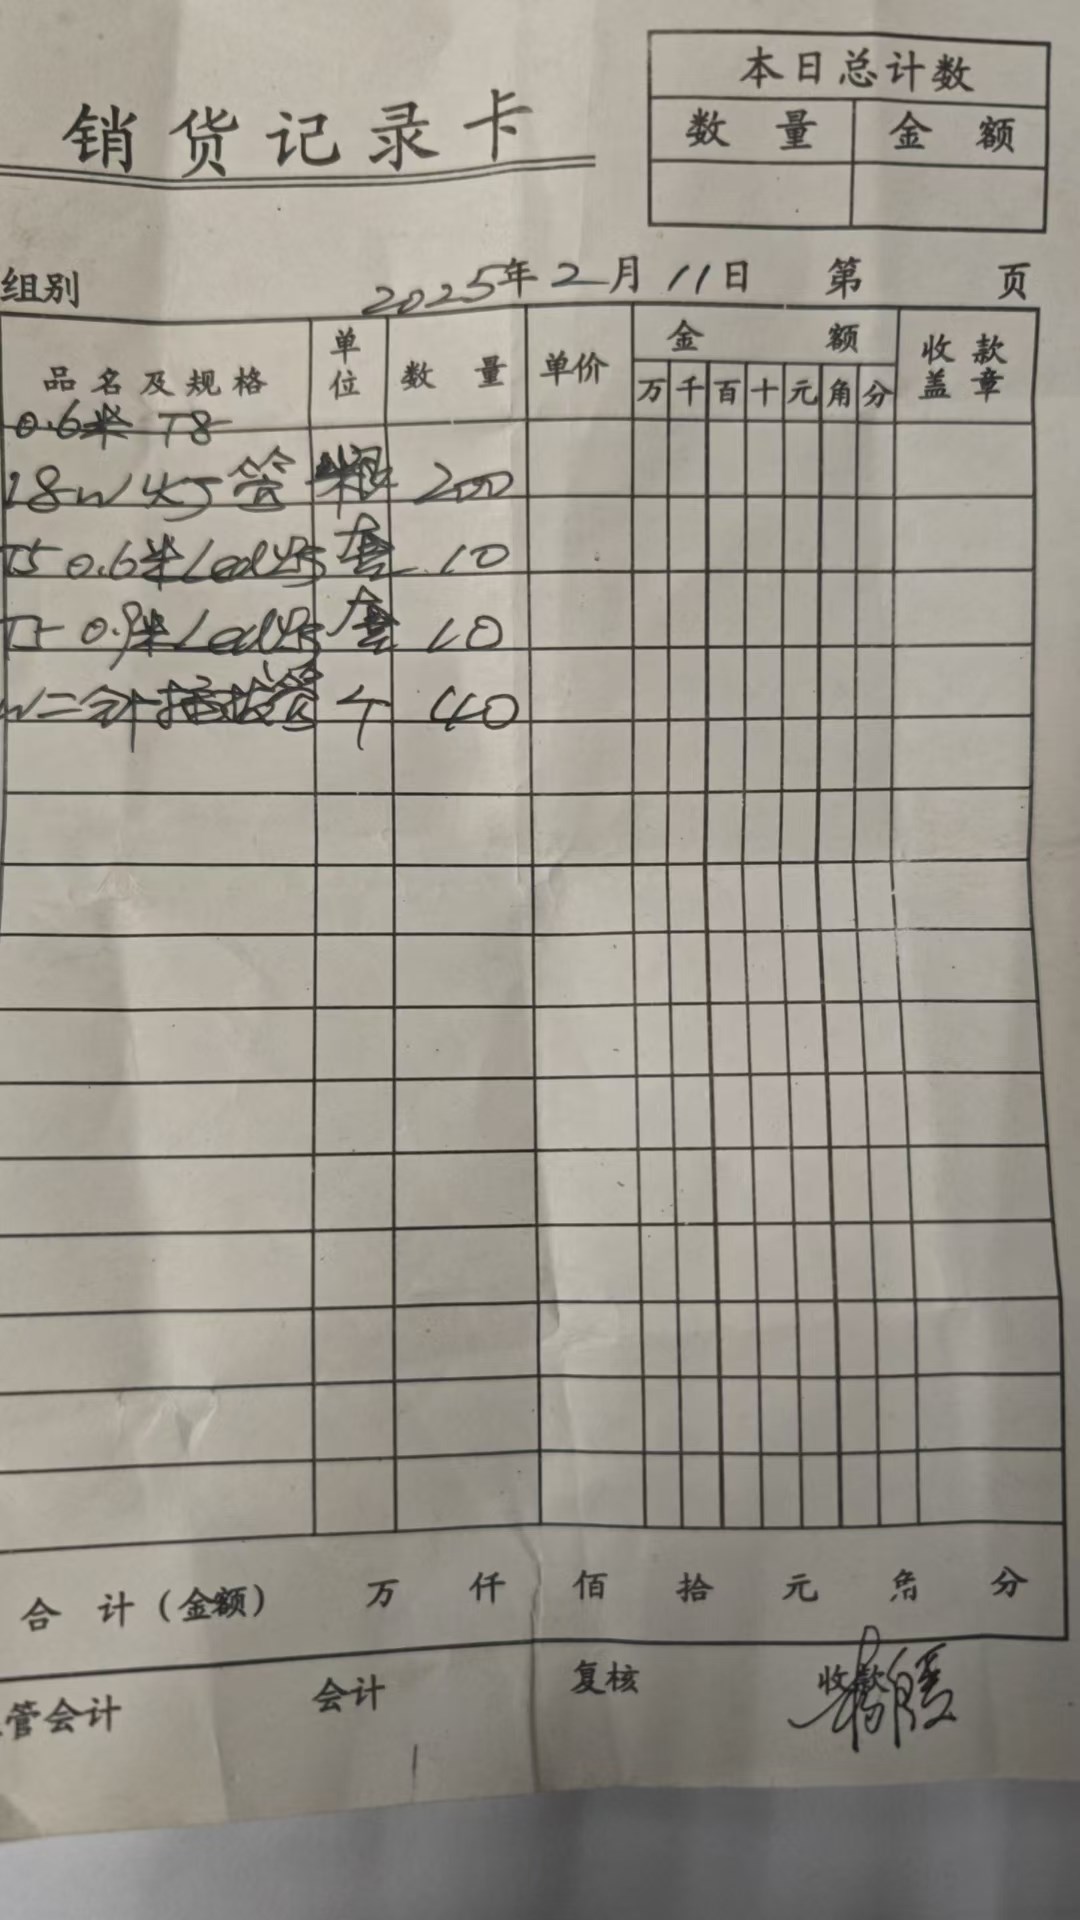 本日总计数
数量 金额
销货记录卡
组别 2025年2月11日 第 页
品名及规格 单位 数量 单价 金额 收款盖章
万 千 百 十 元 角 分
0.6米 T8
18W灯管 根 200
T5 0.6米Led灯 套 10
T5 0.9米Led灯 套 10
W二针插拔管 个 40
合计(金额) 万 仟 佰 拾 元 角 分
管会计 会计 复核 收款